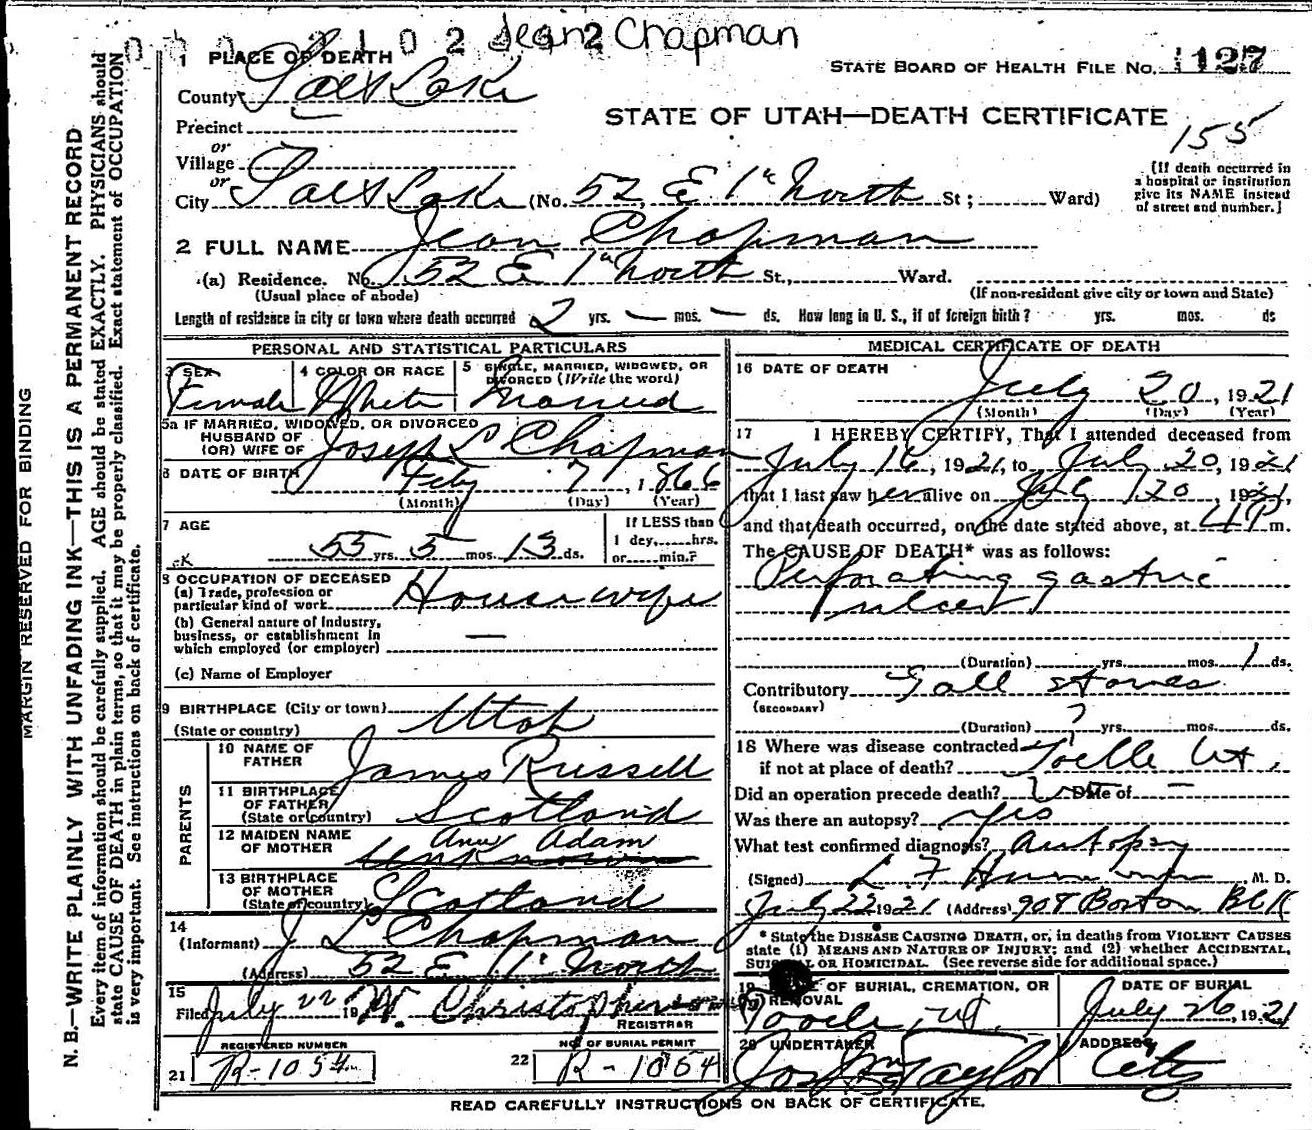 Jean Chapman
1 PLACE OF DEATH
STATE BOARD OF HEALTH FILE No. 127
County Salt Lake
STATE OF UTAH—DEATH CERTIFICATE
155
Precinct
or
Village
or
City Salt Lake (No. 52 E 1st North St; Ward)
[If death occurred in
a hospital or institution
give its NAME instead
of street and number.]
2 FULL NAME Jean Chapman
(a) Residence. No. 52 E 1st North St., Ward.
(Usual place of abode)
(If non-resident give city or town and State)
Length of residence in city or town where death occurred 2 yrs. — mos. — ds. How long in U. S., if of foreign birth? yrs. mos. ds
PERSONAL AND STATISTICAL PARTICULARS
3 SEX
Female
4 COLOR OR RACE
White
5 SINGLE, MARRIED, WIDOWED, OR
DIVORCED (Write the word)
Married
5a IF MARRIED, WIDOWED, OR DIVORCED
HUSBAND OF
(OR) WIFE OF Joseph L Chapman
6 DATE OF BIRTH Feby 7, 1866
(Month) (Day) (Year)
7 AGE
55 yrs. 5 mos. 13 ds.
If LESS than
1 dey, hrs.
or min.?
8 OCCUPATION OF DECEASED
(a) Trade, profession or
particular kind of work Housewife
(b) General nature of Industry,
business, or establishment in
which employed (or employer) —
(c) Name of Employer
9 BIRTHPLACE (City or town)
(State or country) Utah
PARENTS
10 NAME OF
FATHER James Russell
11 BIRTHPLACE
OF FATHER
(State or country) Scotland
12 MAIDEN NAME
OF MOTHER Ann Adam
Unknown
13 BIRTHPLACE
OF MOTHER
(State or country) Scotland
14
(Informant) J L Chapman
(Address) 52 E 1st North
15
Filed July 22 19 W. Christopherson
REGISTRAR
REGISTERED NUMBER
21 R-1054
NO. OF BURIAL PERMIT
22 R-1054
MEDICAL CERTIFICATE OF DEATH
16 DATE OF DEATH
July 20, 1921
(Month) (Day) (Year)
17 I HEREBY CERTIFY, That I attended deceased from
July 16, 1921, to July 20, 1921
that I last saw her alive on July 20, 1921,
and that death occurred, on the date stated above, at 4 P m.
The CAUSE OF DEATH* was as follows:
Perforating gastric
ulcer
(Duration) yrs. mos. 1 ds.
Contributory Gall stones
(SECONDARY)
(Duration) ? yrs. mos. ds.
18 Where was disease contracted
if not at place of death? Toelle Ut.
Did an operation precede death? Date of —
Was there an autopsy? Yes
What test confirmed diagnosis? Autopsy
(Signed) L. F. M. D.
July 22 1921 (Address) 908 Boston Blk
* State the DISEASE CAUSING DEATH, or, in deaths from VIOLENT CAUSES
state (1) MEANS AND NATURE OF INJURY; and (2) whether ACCIDENTAL,
SUICIDAL OR HOMICIDAL. (See reverse side for additional space.)
19 OF BURIAL, CREMATION, OR
REMOVAL
Tooele, Ut.
DATE OF BURIAL
July 26, 1921
20 UNDERTAKER
Jos Wm Taylor
ADDRESS
City
READ CAREFULLY INSTRUCTIONS ON BACK OF CERTIFICATE.
MARGIN RESERVED FOR BINDING
N. B.—WRITE PLAINLY WITH UNFADING INK—THIS IS A PERMANENT RECORD
Every item of information should be carefully supplied. AGE should be stated EXACTLY. PHYSICIANS should
state CAUSE OF DEATH in plain terms, so that it may be properly classified. Exact statement of OCCUPATION
is very important. See instructions on back of certificate.